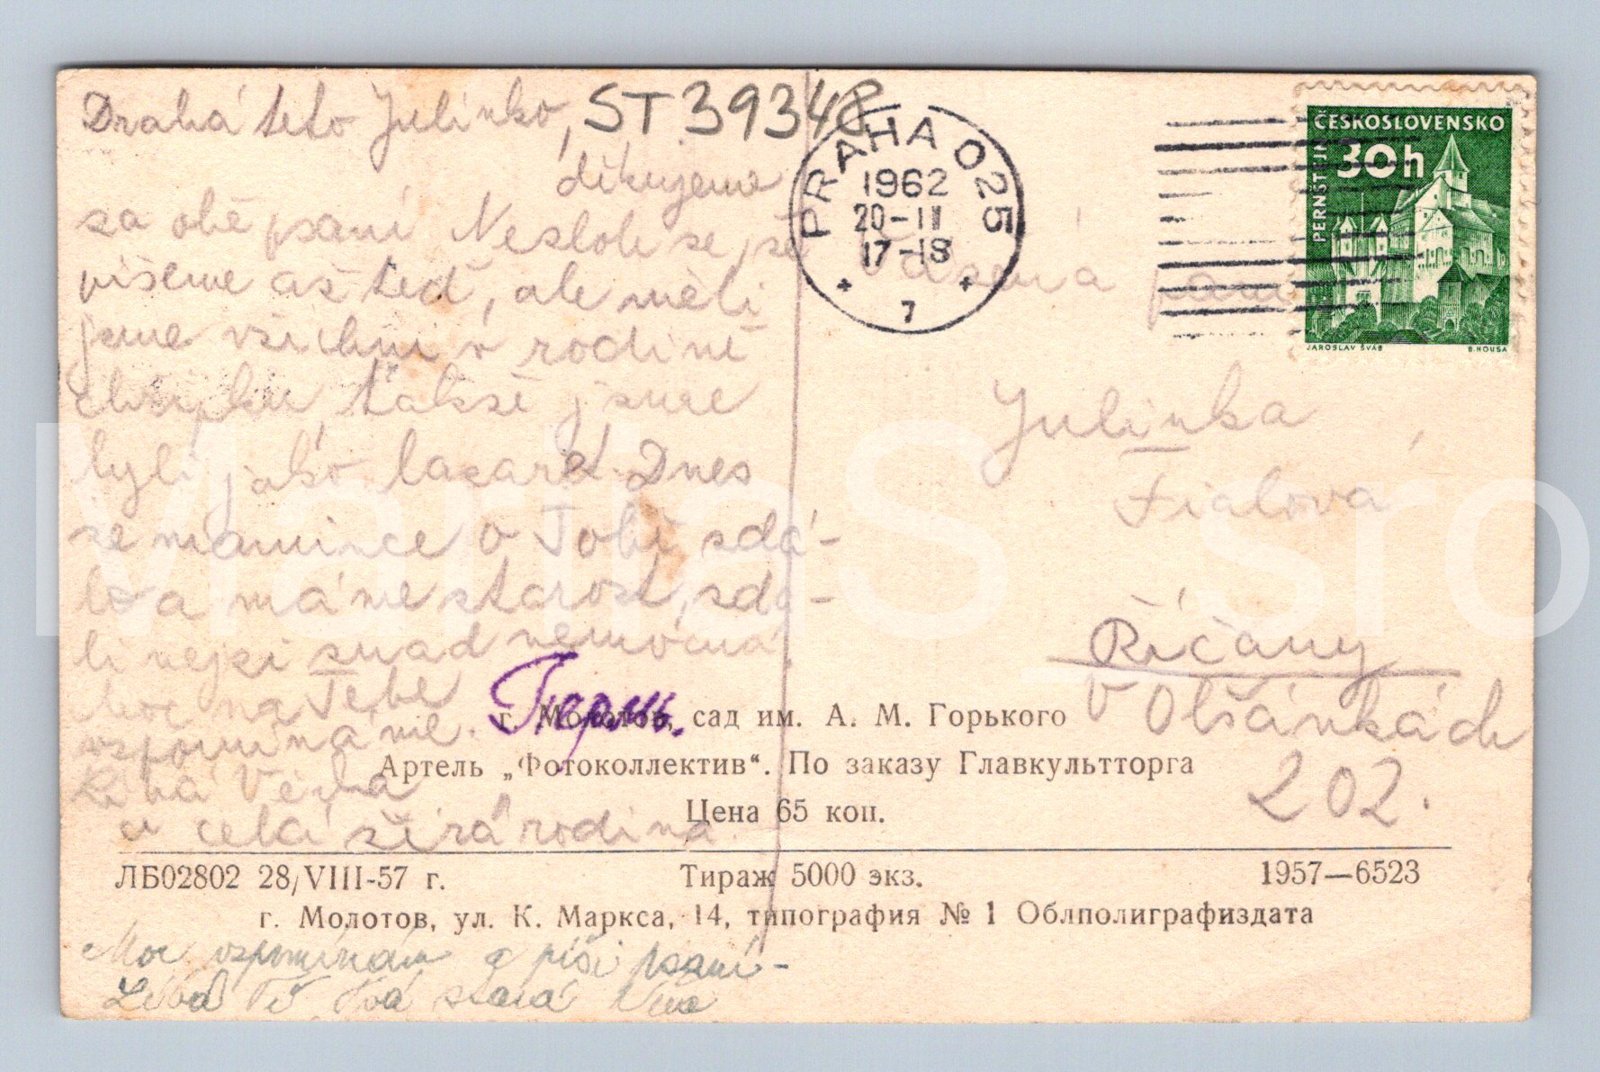 Drahá teto Julinko, ST 39348
děkujeme
za obě psaní Nezlob se, že
píšeme až teď, ale měli
jsme všichni v rodině
chřipku, takže jsme
byli jako lazaret. Dnes
se mamince o Tobě zdá-
lo a máme starost, zda-
li nejsi snad nemocná.
Moc na Tebe
vzpomínáme.
Líbá Věrka
a celá širá rodina.
Moc vzpomínám a píši psaní-
Líbá Tě Tvá stará
PRAHA 025
1962
20-II
17-18
7
ČESKOSLOVENSKO
30h
PERNŠTEJN
JAROSLAV ŠVÁB B. HOUSA
Vážená paní
Julinka
Fialova
Říčany
v Olšánkách
202.
Пермь.
г. Молотов, сад им. А. М. Горького
Артель „Фотоколлектив“. По заказу Главкультторга
Цена 65 коп.
ЛБ02802 28/VIII-57 г. Тираж 5000 экз. 1957—6523
г. Молотов, ул. К. Маркса, 14, типография № 1 Облполиграфиздата
MartiaS sro